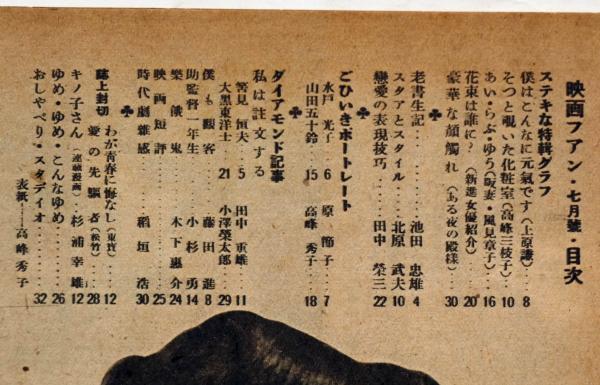 映画フアン・七月號・目次
ステキな特輯グラフ
僕はこんなに元氣です(上原謙)…8
そつと覗いた化粧室(高峰三枝子)…10
あい・らぶ・ゆう(阪妻・風見章子)…16
花束は誰に?(新進女優紹介)…20
豪華な顔觸れ(ある夜の殿様)…30
♣
老書生記………池田忠雄 4
スタアとスタイル………北原武夫 10
戀愛の表現技巧………田中榮三 22
♣
ごひいきポートレート
水戸光子…6 原節子…7
山田五十鈴…15 高峰秀子…18
♣
ダイアモンド記事
私は註文する
筈見恒夫…5 田中重雄…11
大黒東洋士…21 小澤榮太郎…29
僕も觀客………藤田進 8
助監督一年生………小杉勇 14
樂俄鬼………木下惠介 24
映画短評………25
時代劇雜感………稲垣浩 30
♣
誌上封切
わが青春に悔なし(東寶)…12
愛の先驅者(松竹)…28
キノ子さん(連載漫画)…杉浦幸雄 12
ゆめ・ゆめ・こんなゆめ………26
おしやべり・スタデイオ………32
表紙——高峰秀子